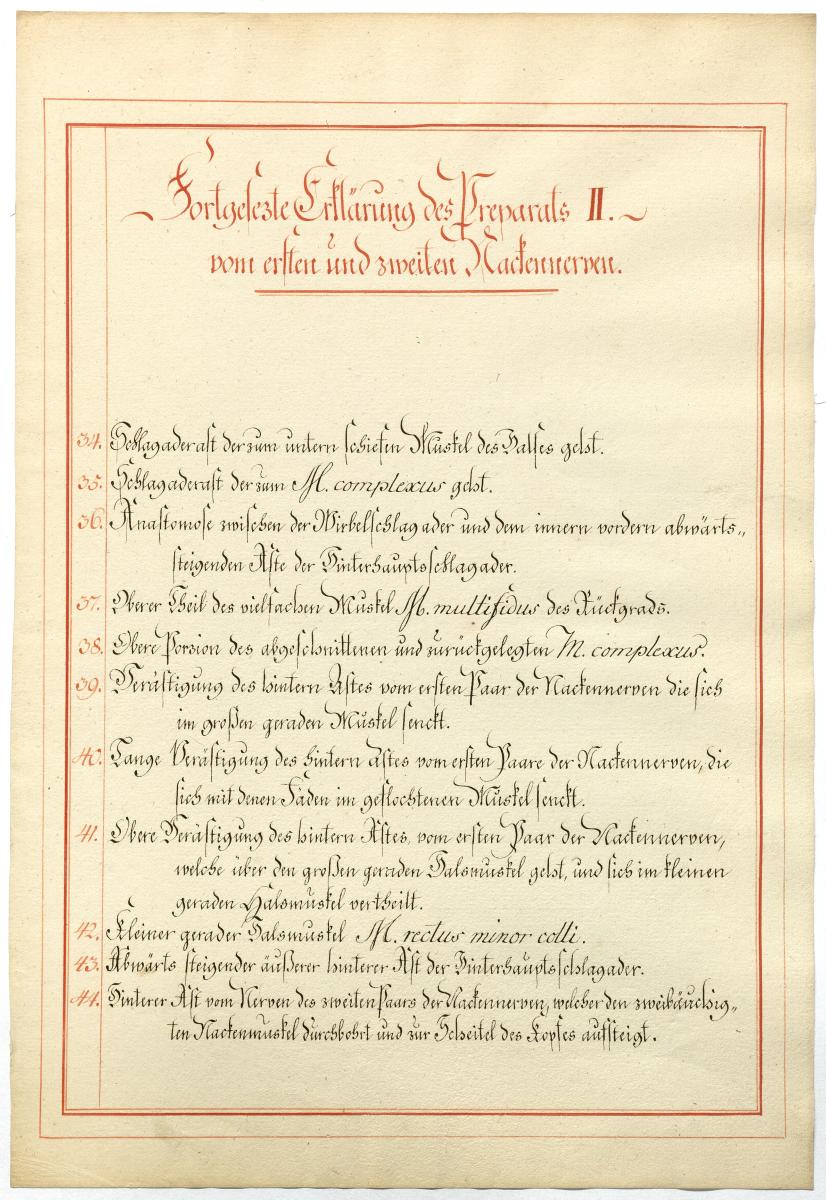 Fortgesezte Erklärung des Preparats II.
vom ersten und zweiten Nackennerven.
34. Schlagaderast der zum untern schiefen Muskel des Halses geht.
35. Schlagaderast der zum M. complexus geht.
36. Anastomose zwischen der Wirbelschlagader und dem innern vordern abwärts„
steigenden Aste der Hinterhauptsschlagader.
37. Oberer Theil des vielfachen Muskel M. multifidus des Rückgrads.
38. Obere Porzion des abgeschnittenen und zurückgelegten M. complexus.
39. Verästigung des hintern Astes vom ersten Paar der Nackennerven die sich
im großen geraden Muskel senckt.
40. Lange Verästigung des hintern Astes vom ersten Paare der Nackennerven, die
sich mit denen Fäden im geflochtenen Muskel senckt.
41. Obere Verästigung des hintern Astes, vom ersten Paar der Nackennerven,
welche über den großen geraden Halsmuskel geht, und sich im kleinen
geraden Halsmuskel vertheilt.
42. Kleiner gerader Halsmuskel M. rectus minor colli.
43. Abwärts steigender äußerer hinterer Ast der Hinterhauptsschlagader.
44. Hinterer Ast vom Nerven des zweiten Paars der Nackennerven, welcher den zweibäuchig„
ten Nackenmuskel durchbohrt und zur Scheitel des Kopfes aufsteigt.